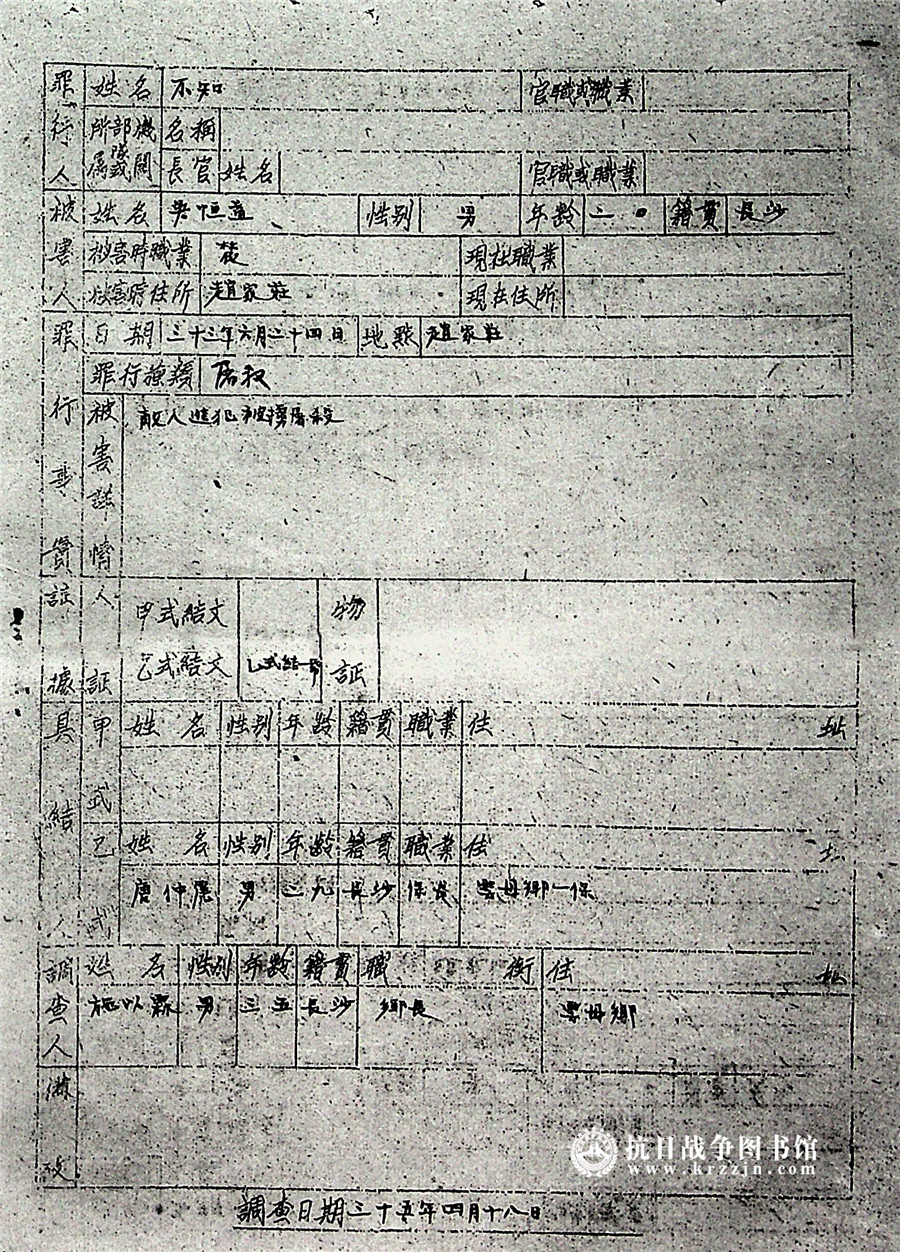 罪行人 姓名 不知 官職或職業
所屬部隊或機關 名稱
長官 姓名 官職或職業
被害人 姓名 吳恒 性别 男 年齡 籍貫 長沙
被害時職業 農 現在職業
被害時住所 趙家莊 現在住所
罪行事實 日期 三十三年六月二十四日 地點 趙家莊
罪行種類 屠殺
被害詳情 敵人進犯被擄屠殺
証據 人証 甲式結文 物証
乙式結文 乙式結一
具結人 甲式 姓名 性别 年齡 籍貫 職業 住址
乙式 姓名 性别 年齡 籍貫 職業 住址
唐仲 男 二九 長沙 保長 雲母鄉一保
調查人 姓名 性别 年齡 籍貫 職銜 住址
以霖 男 三五 長沙 鄉長 雲母鄉
備考
調查日期三十五年四月十八日
抗日战争图书馆
www.krzzjn.com